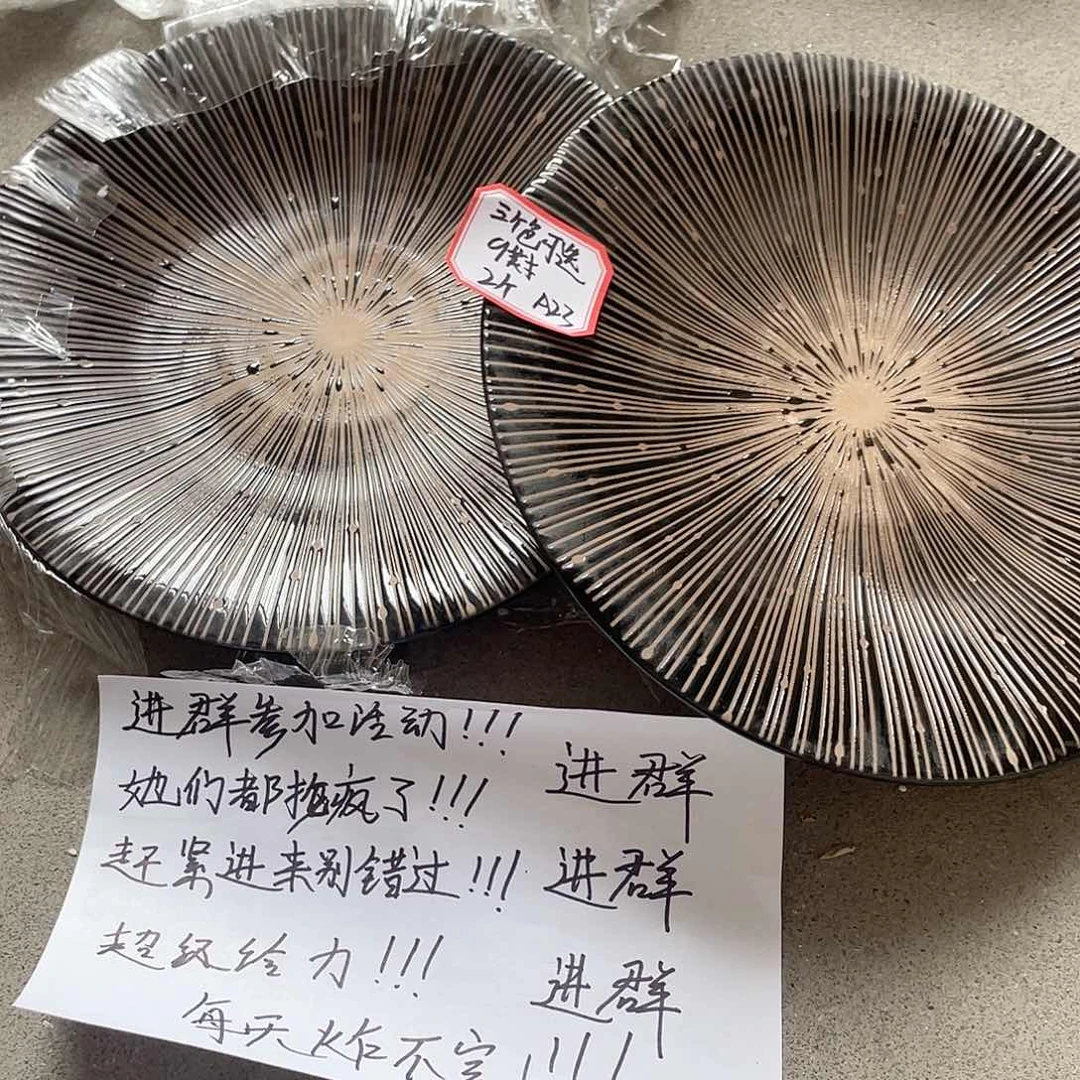 三个色可选
9寸
2个 A23
进群参加活动!!!
她们都抢疯了!!! 进群
赶紧进来别错过!!! 进群
超级给力!!! 进群
每天 不定!!!!